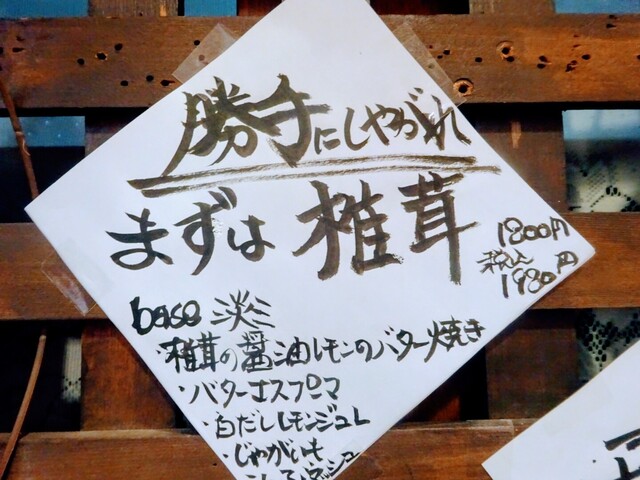 勝手にしやがれ
まずは 椎茸
1800円
税込
1980円
base 淡々
・椎茸の醤油レモンのバター焼き
・バターエスプーマ
・白だしレモンジュレ
・じゃがいも